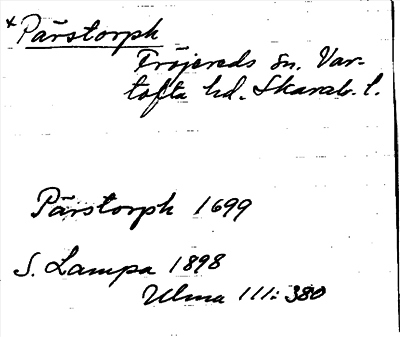 *Pärstorph
Fröjereds sn. Var-
tofta hd. Skarab. l.
Pärstorph 1699
S. Lampa 1898
Ulma 111:380